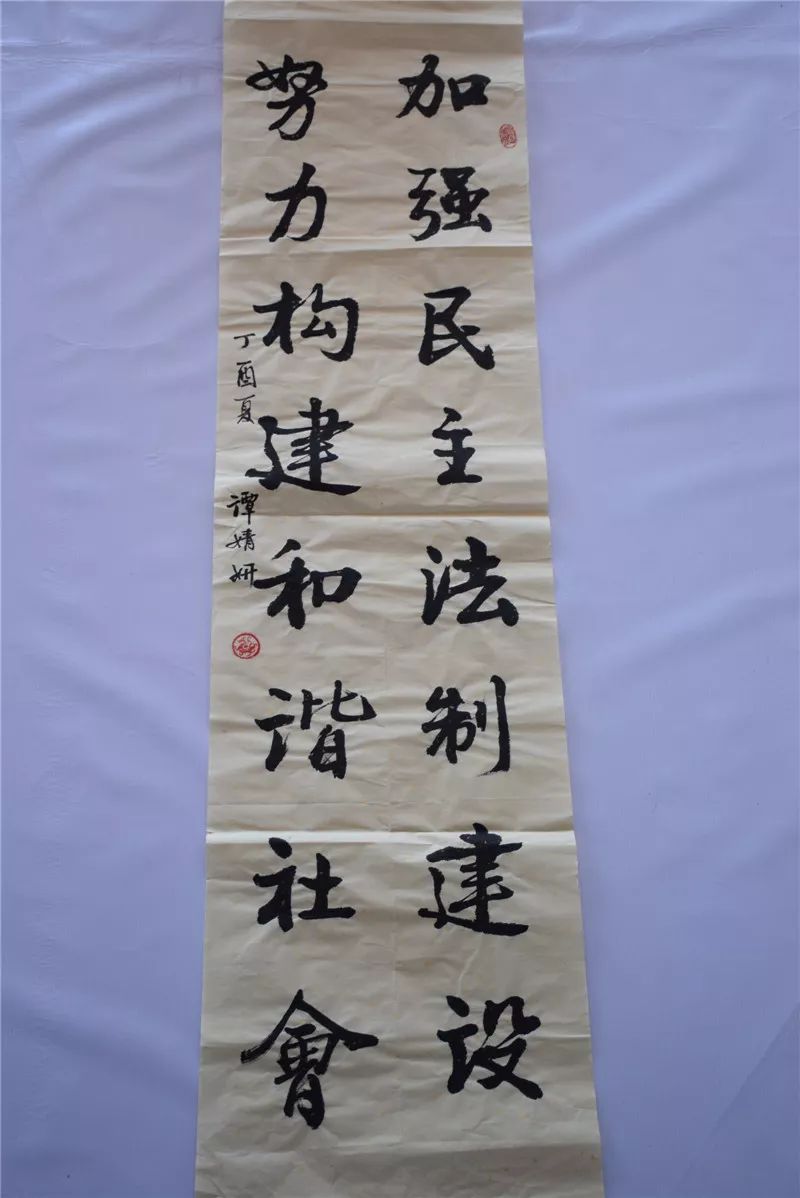 加强民主法制建设
努力构建和谐社會
丁酉夏 谭婧妍